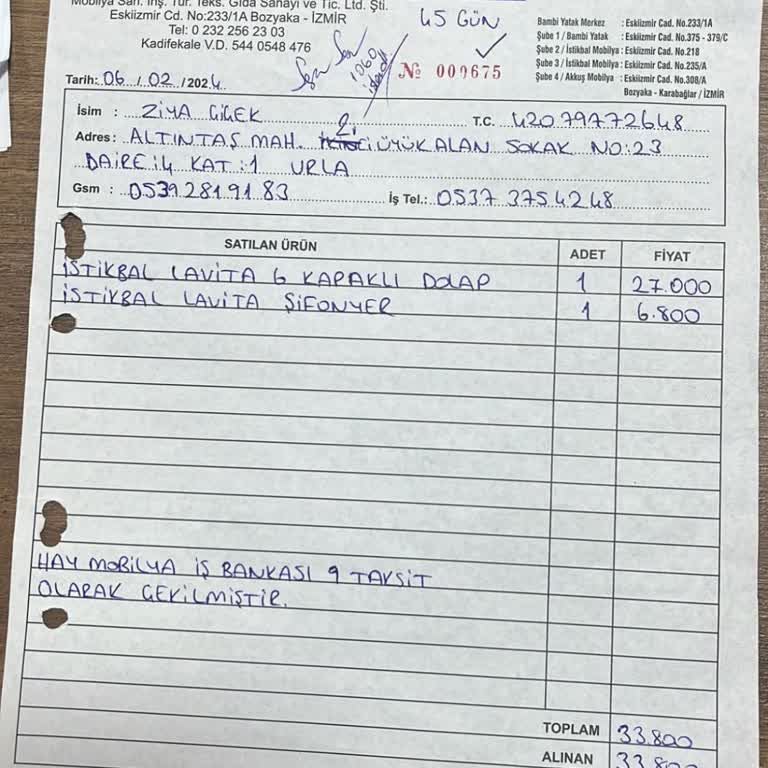 Mobilya San. İnş. Tur. Teks. Gıda Sanayi ve Tic. Ltd. Şti.
Eskiizmir Cd. No:233/1A Bozyaka - İZMİR
Tel: 0 232 256 23 03
Kadifekale V.D. 544 0548 476
45 GÜN
1060
№ 009675
Bambi Yatak Merkez : Eskiizmir Cad. No.233/1A
Şube 1 / Bambi Yatak : Eskiizmir Cad. No.375 - 379/C
Şube 2 / İstikbal Mobilya : Eskiizmir Cad. No.218
Şube 3 / İstikbal Mobilya : Eskiizmir Cad. No.235/A
Şube 4 / Akkuş Mobilya : Eskiizmir Cad. No.308/A
Bozyaka - Karabağlar / İZMİR
Tarih: 06 / 02 / 2024
İsim : ZİYA ÇİÇEK T.C. 42079772648
Adres: ALTINTAŞ MAH. 2. ÜYÜKALAN SOKAK NO:23
DAİRE:4 KAT:1 URLA
Gsm : 0539 281 91 83 İş Tel.: 0537 375 42 48
SATILAN ÜRÜN ADET FİYAT
İSTİKBAL LAVİTA 6 KAPAKLI DOLAP 1 27.000
İSTİKBAL LAVİTA ŞİFONYER 1 6.800
HAY MOBİLYA İŞ BANKASI 9 TAKSİT
OLARAK ÇEKİLMİŞTİR.
TOPLAM 33.800
ALINAN 33.800